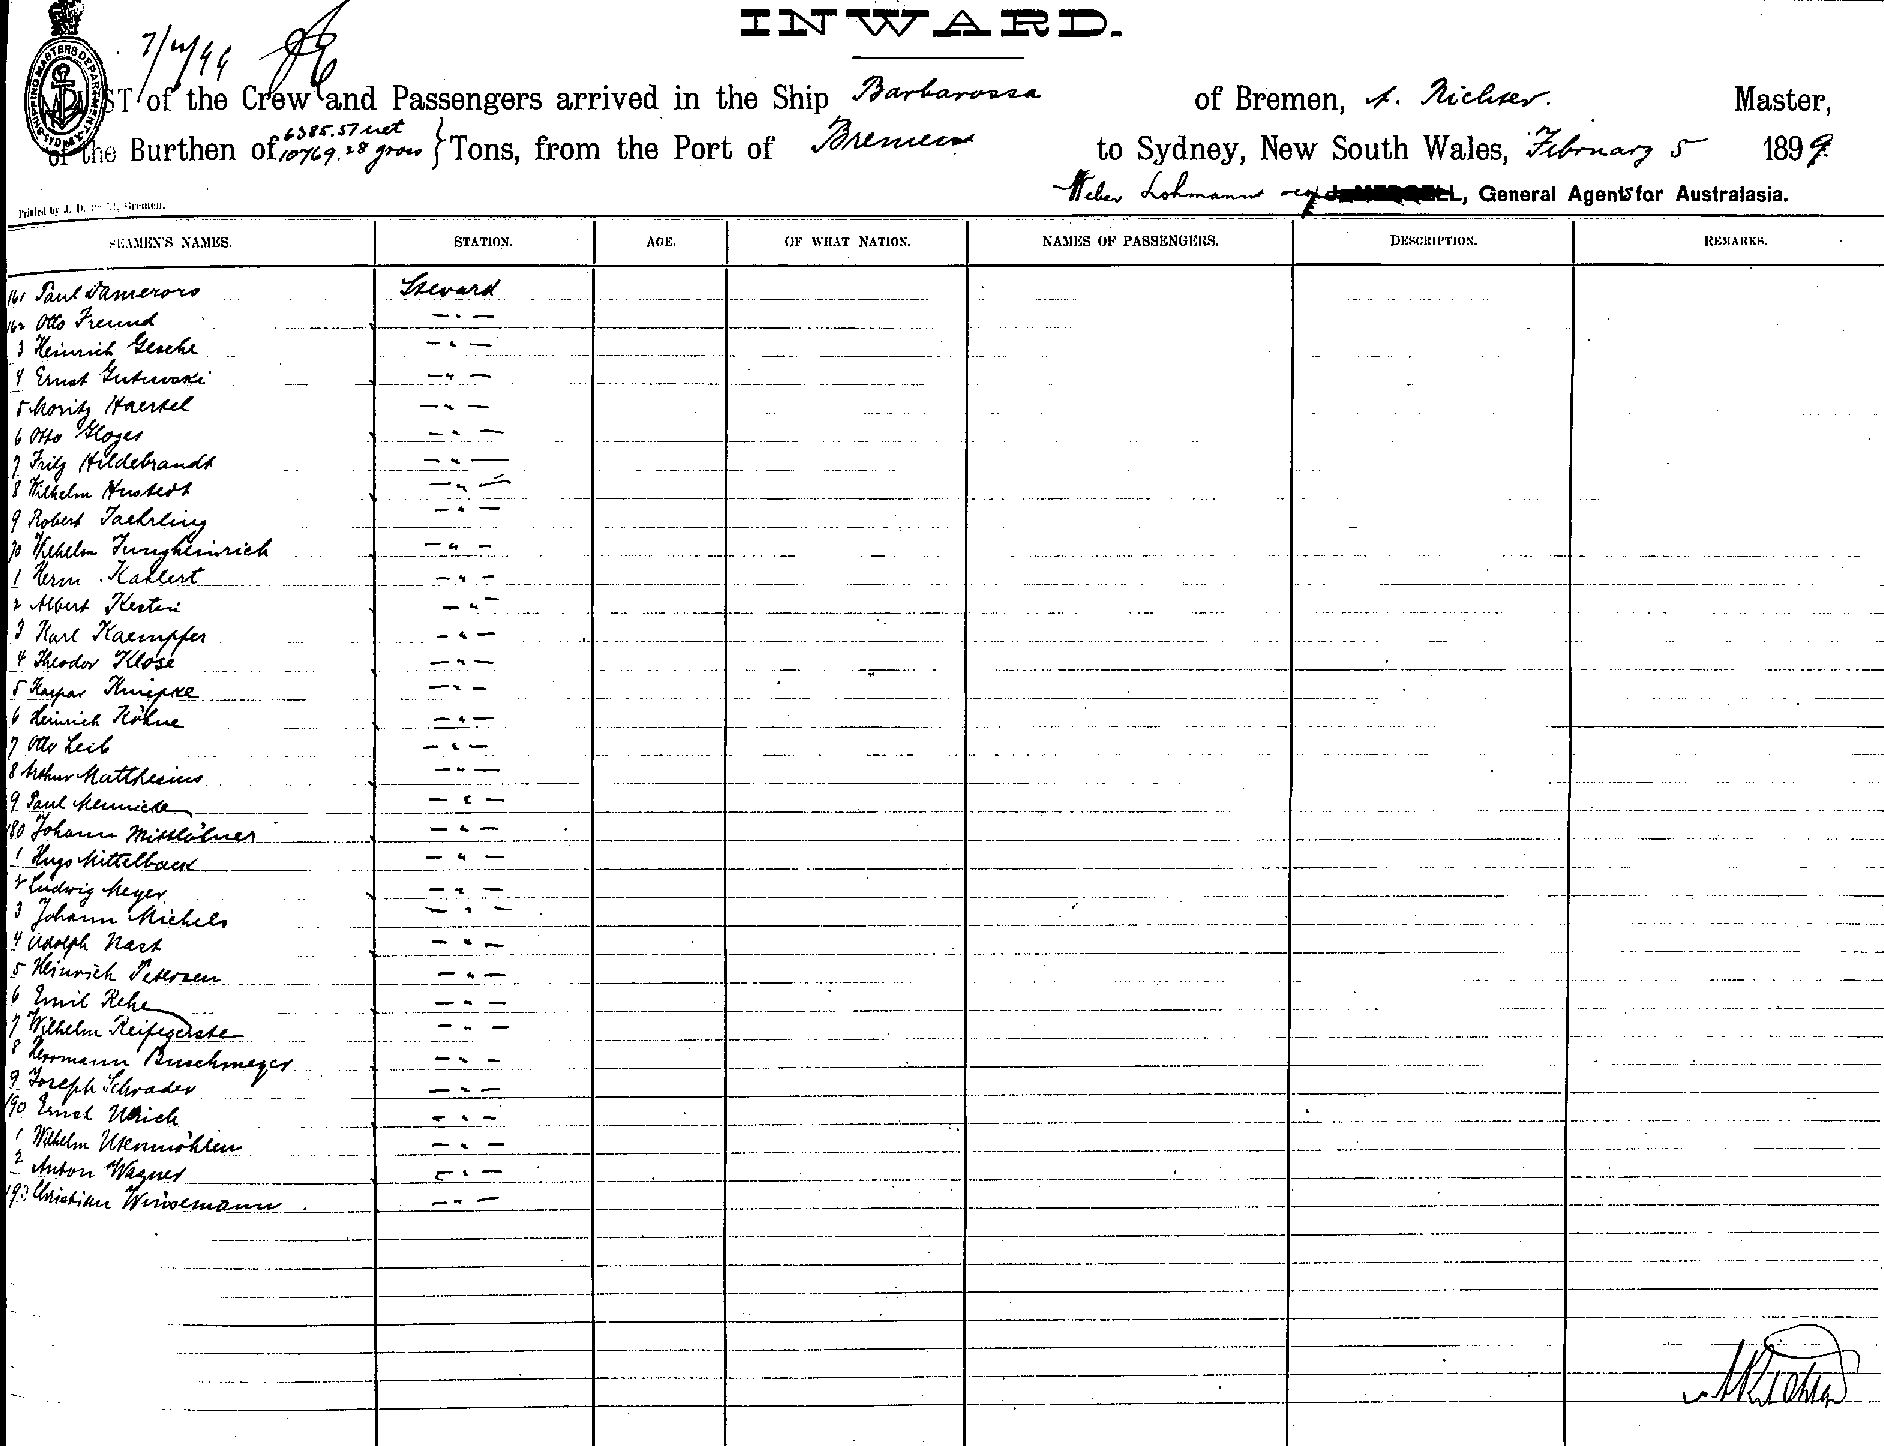 INWARD.
7/2/99
LIST of the Crew and Passengers arrived in the Ship Barbarossa of Bremen, A. Richter. Master,
6385.57 net
of the Burthen of 10769.28 gross } Tons, from the Port of Bremen to Sydney, New South Wales, February 5 1899.
Weber Lohmann General Agents for Australasia.
Printed by J. D. Bremen.
SEAMEN'S NAMES. STATION. AGE. OF WHAT NATION. NAMES OF PASSENGERS. DESCRIPTION. REMARKS.
161 Paul Damerow Steward
162 Otto Freund - " -
3 Heinrich Gesche - " -
4 Ernst Gutowski - " -
5 Moritz Haertel - " -
6 Otto Gloges - " -
7 Fritz Hildebrandt - " -
8 Wilhelm Hustedt - " -
9 Robert Jaehrling - " -
70 Wilhelm Jungheinrich - " -
1 Herm. Kahlert - " -
2 Albert Kestin - " -
3 Karl Kaempfer - " -
4 Theodor Klose - " -
5 Kaspar Knipke - " -
6 Heinrich Köhne - " -
7 Otto Leib - " -
8 Arthur Matthesius - " -
9 Paul Mennicke - " -
180 Johann Mittlöhner - " -
1 Hugo Mittelback - " -
2 Ludwig Meyer - " -
3 Johann Michels - " -
4 Adolph Nast - " -
5 Heinrich Petersen - " -
6 Emil Rehe - " -
7 Wilhelm Reifegerste - " -
8 Herrmann Buschmeyer - " -
9 Joseph Schrader - " -
190 Ernst Ulrich - " -
1 Wilhelm Ukenmöhlen - " -
2 Anton Wagner - " -
193 Christian Winsemann - " -
A Richter